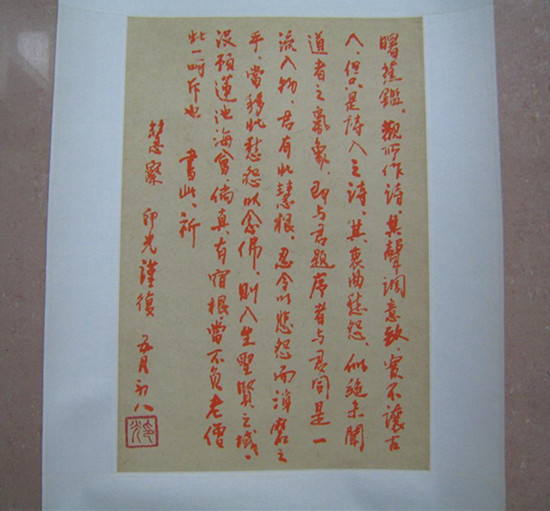 曙蕉鑑、觀所作詩、其聲調意致、實不讓古
人、但只是詩人之詩、其衷曲愁怨、似絕未聞
道者之氣象、即与君題序者与君同是一
流人物、君有此慧根、忍令以愁怨而消磨之
乎、當移此愁怨以念佛、則入生聖賢之域、
沒預蓮池海會、倘真有宿根、當不負老僧
此一呵斥也 書此、祈
慧察 印光謹復 五月初八
印光